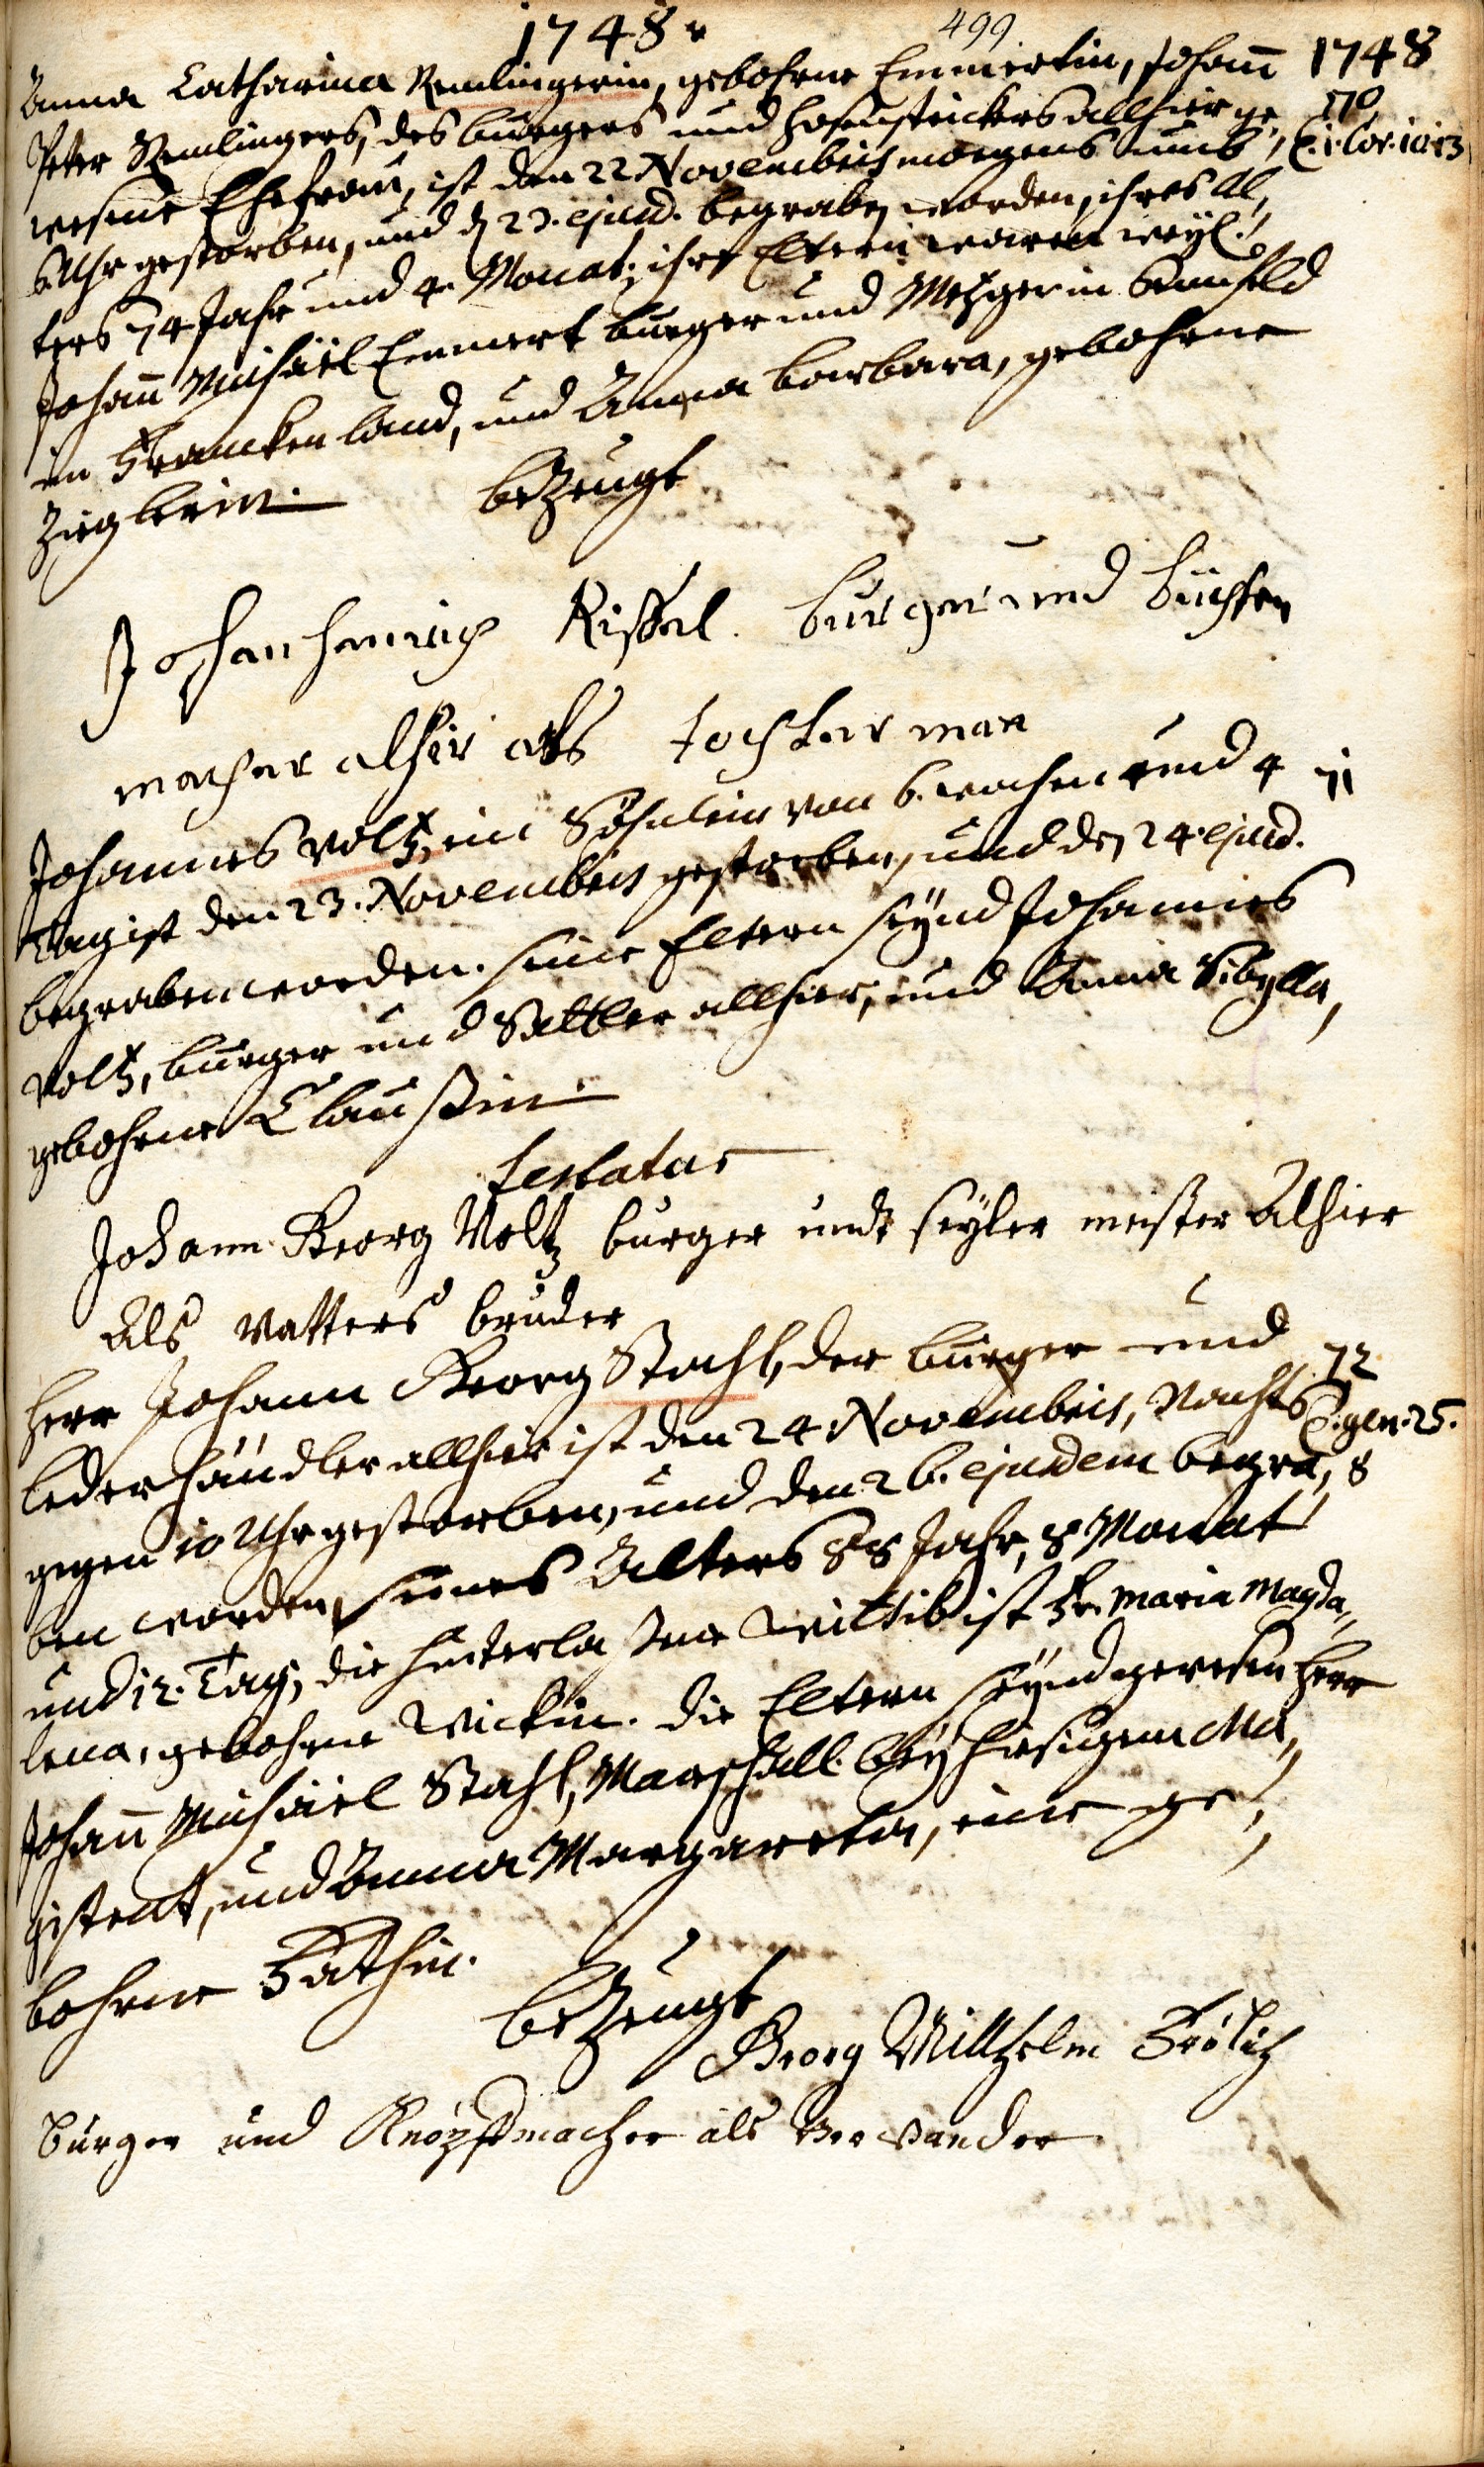 1748.
499
1748
Anna Catharina Remlingerin, gebohrne Emmertin, Johann
Peter Remlingers, des burgers und hosenstrickers allhier ge,
70
wesene Ehefrau, ist den 22 Novembris morgens umb
C. 1. Cor. 10. 13
6 Uhr gestorben, und d 23. ejusd. begraben worden, ihres Al,
ters 74 Jahr und 4. Monat; ihre Eltern waren weyl.
Johann Michäel Emmert burger und Metzger in Sennfeld
in Franckenland, und Anna Barbara, gebohrne
Zieglerin.
bezeugt
Johan henrich Kissel burger und büchsen
macher alhir als tochterman
Johannes Voltz, ein Söhnlein von 6. wochen und 4
71
Tag ist den 23. Novembris gestorben, und den 24. ejusd.
begraben worden. seine Eltern seynd Johannes
Voltz, burger und Sattler allhier, und Anna Sibylla,
gebohrne Claussin
testatur
Johann Georg Voltz burger undt seyler meister Alhier
Als Vatters bruder
Herr Johann Georg Stahl, der burger und
72
lederhändler allhier ist den 24. Novembris, Nachts
C. gen. 25.
gegen 10 Uhr gestorben, und den 26. ejusdem begra,
8
ben worden, seines Alters 58 Jahr, 8 Monat
und 12. Tag, die hinterlassene Wittib ist Fr. Maria Magda,,
lena, gebohrne Wickin. die Eltern seynd gewesen Herr
Johann Michäel Stahl, Marschall bey hiesigem Ma,,
gistrat, und Anna Margaretha, eine ge,,
bohrne Fathin.
bezeugt
Georg Willhelm Frölich
burger und Knöpfmacher als Verwander